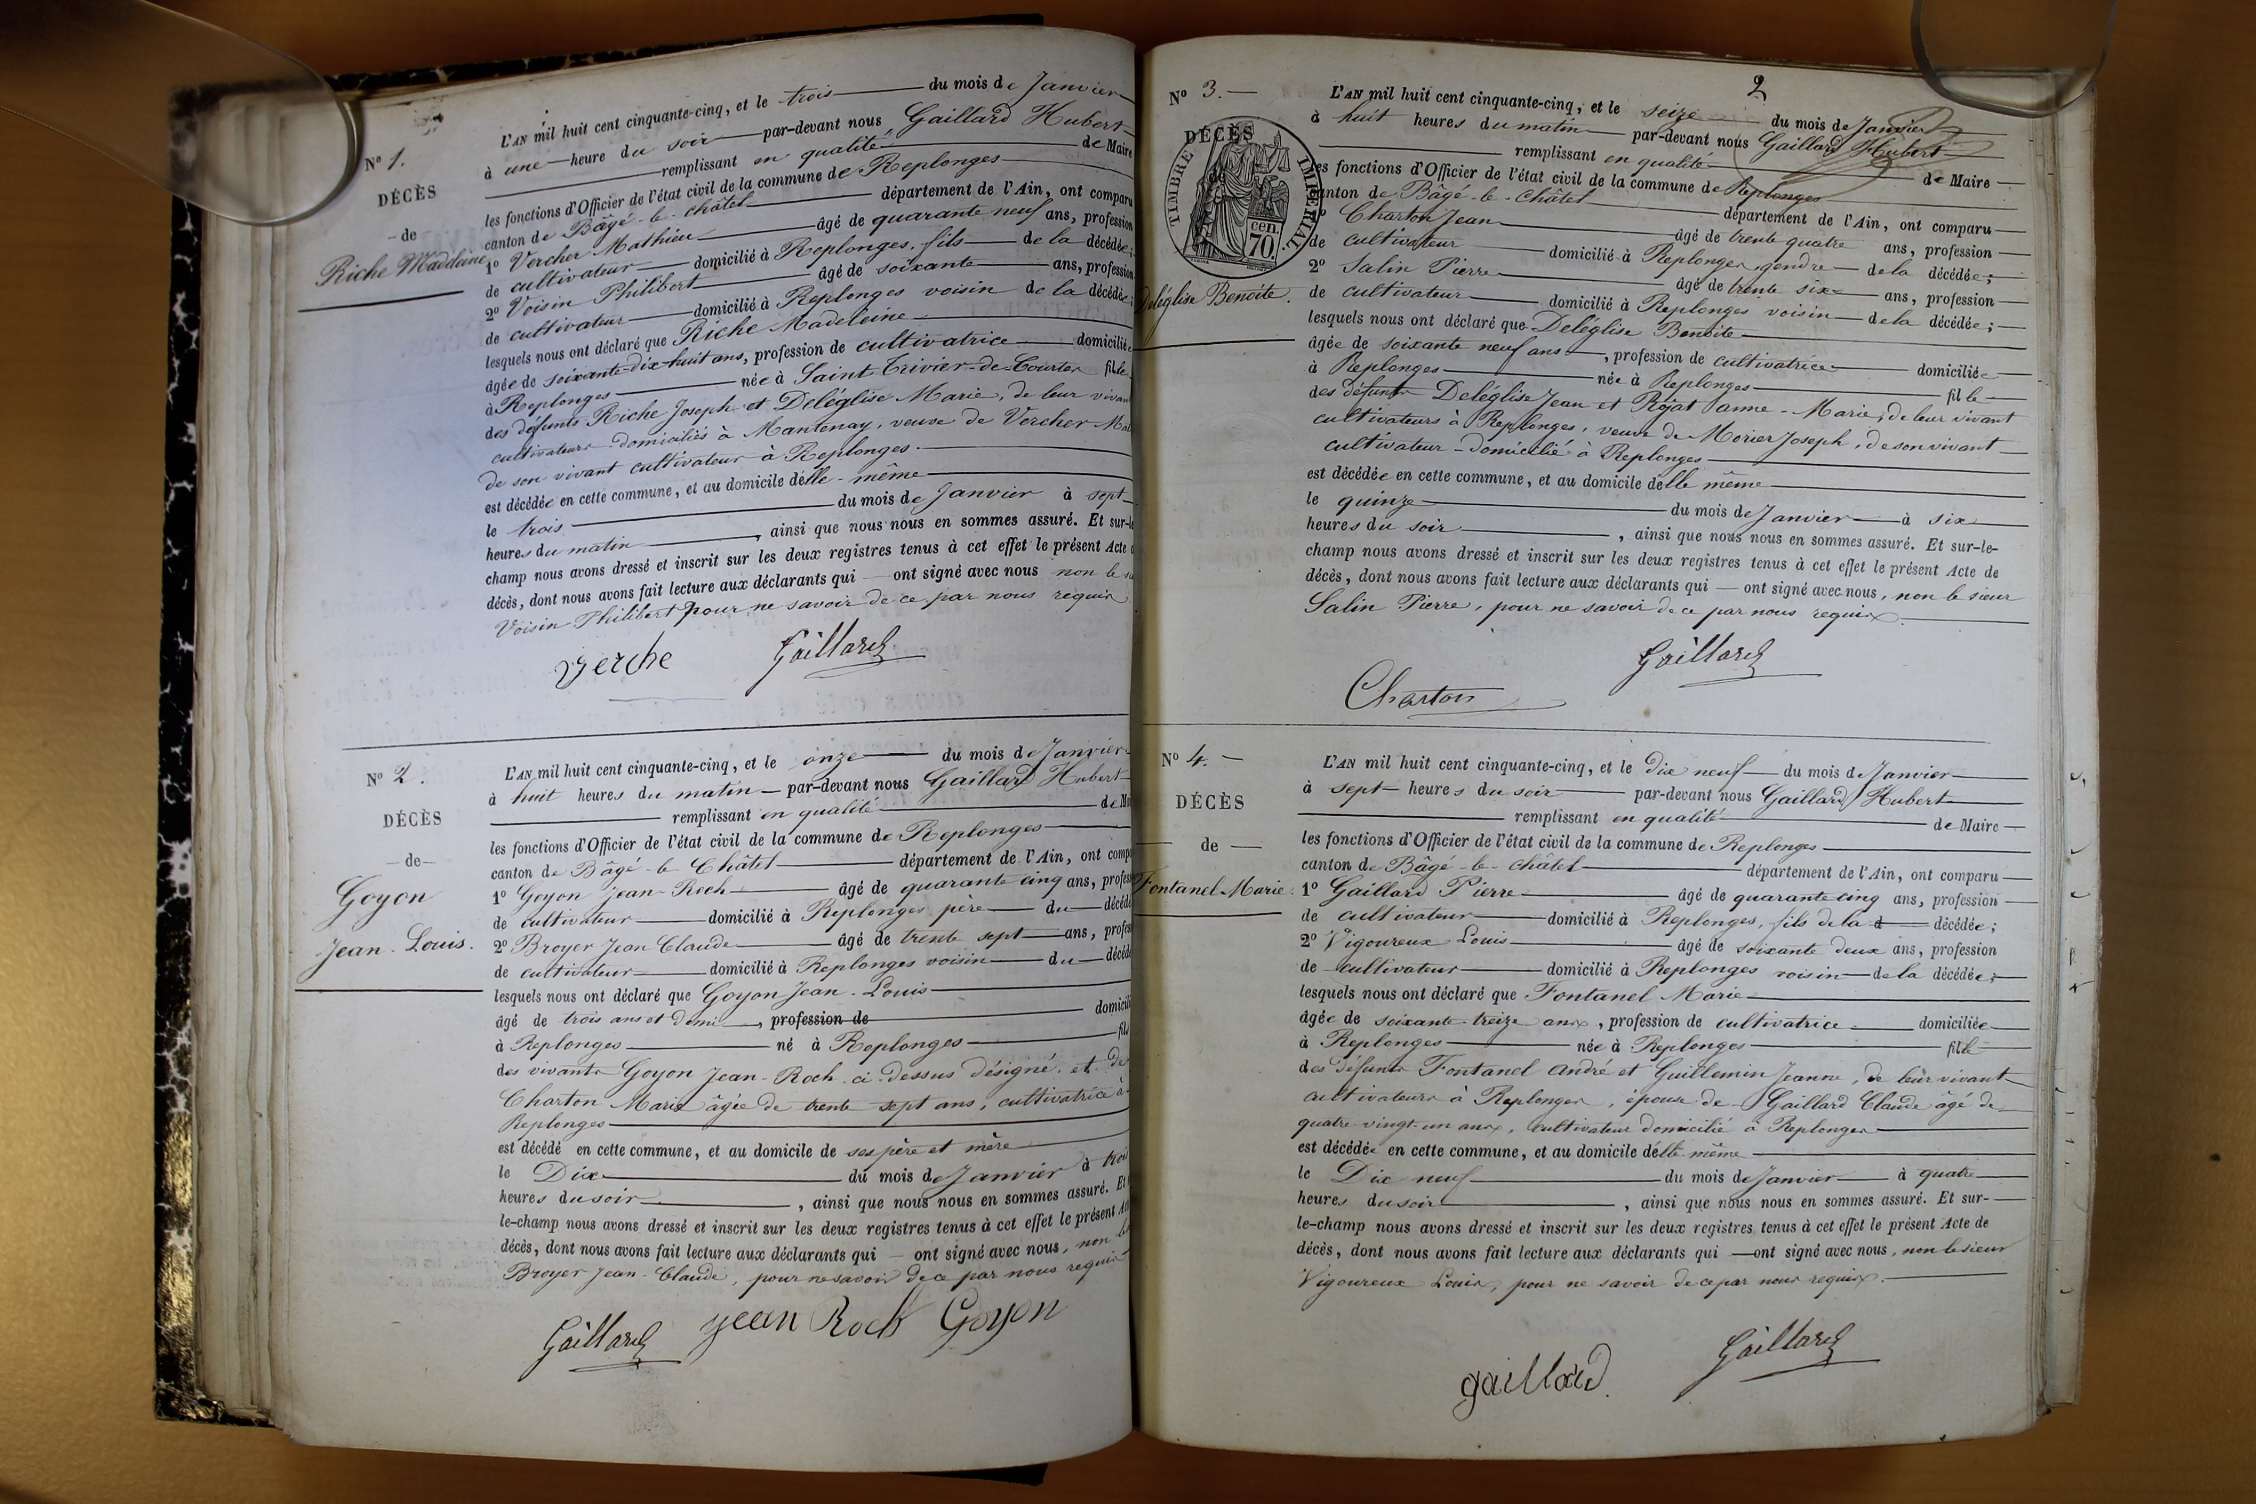 L'AN mil huit cent cinquante-cinq, et le trois du mois de Janvier
à une heure du soir par-devant nous Gaillard Hubert
remplissant en qualité de Maire
les fonctions d'Officier de l'état civil de la commune de Replonges
canton de Bâgé-le-Châtel département de l'Ain, ont comparu
1º Vercher Mathieu âgé de quarante neuf ans, profession
de cultivateur domicilié à Replonges, fils de la décédée;
2º Voisin Philibert âgé de soixante ans, profession
de cultivateur domicilié à Replonges voisin de la décédée;
lesquels nous ont déclaré que Riche Madeleine
âgée de soixante-dix-huit ans, profession de cultivatrice domiciliée
à Replonges née à Saint-Trivier-de-Courtes fille
des défunts Riche Joseph et Deléglise Marie, de leur vivant
cultivateurs domiciliés à Mantenay, veuve de Vercher
de son vivant cultivateur à Replonges.
est décédée en cette commune, et au domicile d'elle-même
le trois du mois de Janvier à sept
heures du matin, ainsi que nous nous en sommes assuré. Et sur-le
champ nous avons dressé et inscrit sur les deux registres tenus à cet effet le présent Acte
décès, dont nous avons fait lecture aux déclarants qui — ont signé avec nous non le
Voisin Philibert pour ne savoir de ce par nous requis
Verche Gaillard
Nº 1.
DÉCÈS
de
Riche Madeleine
L'AN mil huit cent cinquante-cinq, et le onze du mois de Janvier
à huit heures du matin par-devant nous Gaillard Hubert
remplissant en qualité de
les fonctions d'Officier de l'état civil de la commune de Replonges
canton de Bâgé-le-Châtel département de l'Ain, ont
1º Goyon Jean-Roch âgé de quarante cinq ans,
de cultivateur domicilié à Replonges père du
2º Broyer Jean Claude âgé de trente sept ans,
de cultivateur domicilié à Replonges voisin du
lesquels nous ont déclaré que Goyon Jean-Louis
âgé de trois ans et demi, profession de
à Replonges né à Replonges
des vivants Goyon Jean-Roch ci-dessus désigné et de
Charton Marie âgée de trente sept ans, cultivatrice à
Replonges
est décédé en cette commune, et au domicile de ses père et mère
le Dix du mois de Janvier à
heures du soir, ainsi que nous nous en sommes assuré. Et
le-champ nous avons dressé et inscrit sur les deux registres tenus à cet effet le présent
décès, dont nous avons fait lecture aux déclarants qui — ont signé avec nous, non
Broyer Jean-Claude, pour ne savoir de ce par nous requis
Gaillard Jean Roch Goyon
Nº 2.
DÉCÈS
de
Goyon
Jean-Louis.
2
Nº 3.
DÉCÈS
TIMBRE IMPÉRIAL.
cen.
70.
Deléglise Benoite.
L'AN mil huit cent cinquante-cinq, et le seize du mois de Janvier
à huit heures du matin par-devant nous Gaillard Hubert
remplissant en qualité de Maire
les fonctions d'Officier de l'état civil de la commune de Replonges
canton de Bâgé-le-Châtel département de l'Ain, ont comparu
Charton Jean âgé de trente quatre ans, profession
de cultivateur domicilié à Replonges, gendre de la décédée;
2º Salin Pierre âgé de trente six ans, profession
de cultivateur domicilié à Replonges voisin de la décédée;
lesquels nous ont déclaré que Deléglise Benoite
âgée de soixante neuf ans, profession de cultivatrice domiciliée
à Replonges née à Replonges fille
des défunts Deléglise Jean et Rojat anne-Marie, de leur vivant
cultivateurs à Replonges, veuve de Morier Joseph, de son vivant
cultivateur-domicilié à Replonges
est décédée en cette commune, et au domicile d'elle même
le quinze du mois de Janvier à six
heures du soir, ainsi que nous nous en sommes assuré. Et sur-le-
champ nous avons dressé et inscrit sur les deux registres tenus à cet effet le présent Acte de
décès, dont nous avons fait lecture aux déclarants qui — ont signé avec nous, non le sieur
Salin Pierre, pour ne savoir de ce par nous requis.
Gaillard
Charton
Nº 4.
DÉCÈS
de
Fontanel Marie.
L'AN mil huit cent cinquante-cinq, et le dix neuf du mois de Janvier
à sept heures du soir par-devant nous Gaillard Hubert
remplissant en qualité de Maire
les fonctions d'Officier de l'état civil de la commune de Replonges
canton de Bâgé-le-Châtel département de l'Ain, ont comparu
1º Gaillard Pierre âgé de quarante cinq ans, profession
de cultivateur domicilié à Replonges, fils de la d décédée;
2º Vigoureux Louis âgé de soixante deux ans, profession
de cultivateur domicilié à Replonges voisin de la décédée;
lesquels nous ont déclaré que Fontanel Marie
âgée de soixante-treize ans, profession de cultivatrice domiciliée
à Replonges née à Replonges fille
des défunts Fontanel André et Guillemin Jeanne, de leur vivant
cultivateurs à Replonges, épouse de Gaillard Claude âgé de
quatre-vingt-un ans, cultivateur domicilié à Replonges
est décédée en cette commune, et au domicile d'elle-même
le Dix neuf du mois de Janvier à quatre
heures du soir, ainsi que nous nous en sommes assuré. Et sur-
le-champ nous avons dressé et inscrit sur les deux registres tenus à cet effet le présent Acte de
décès, dont nous avons fait lecture aux déclarants qui — ont signé avec nous, non le sieur
Vigoureux Louis, pour ne savoir de ce par nous requis.
gaillard. Gaillard